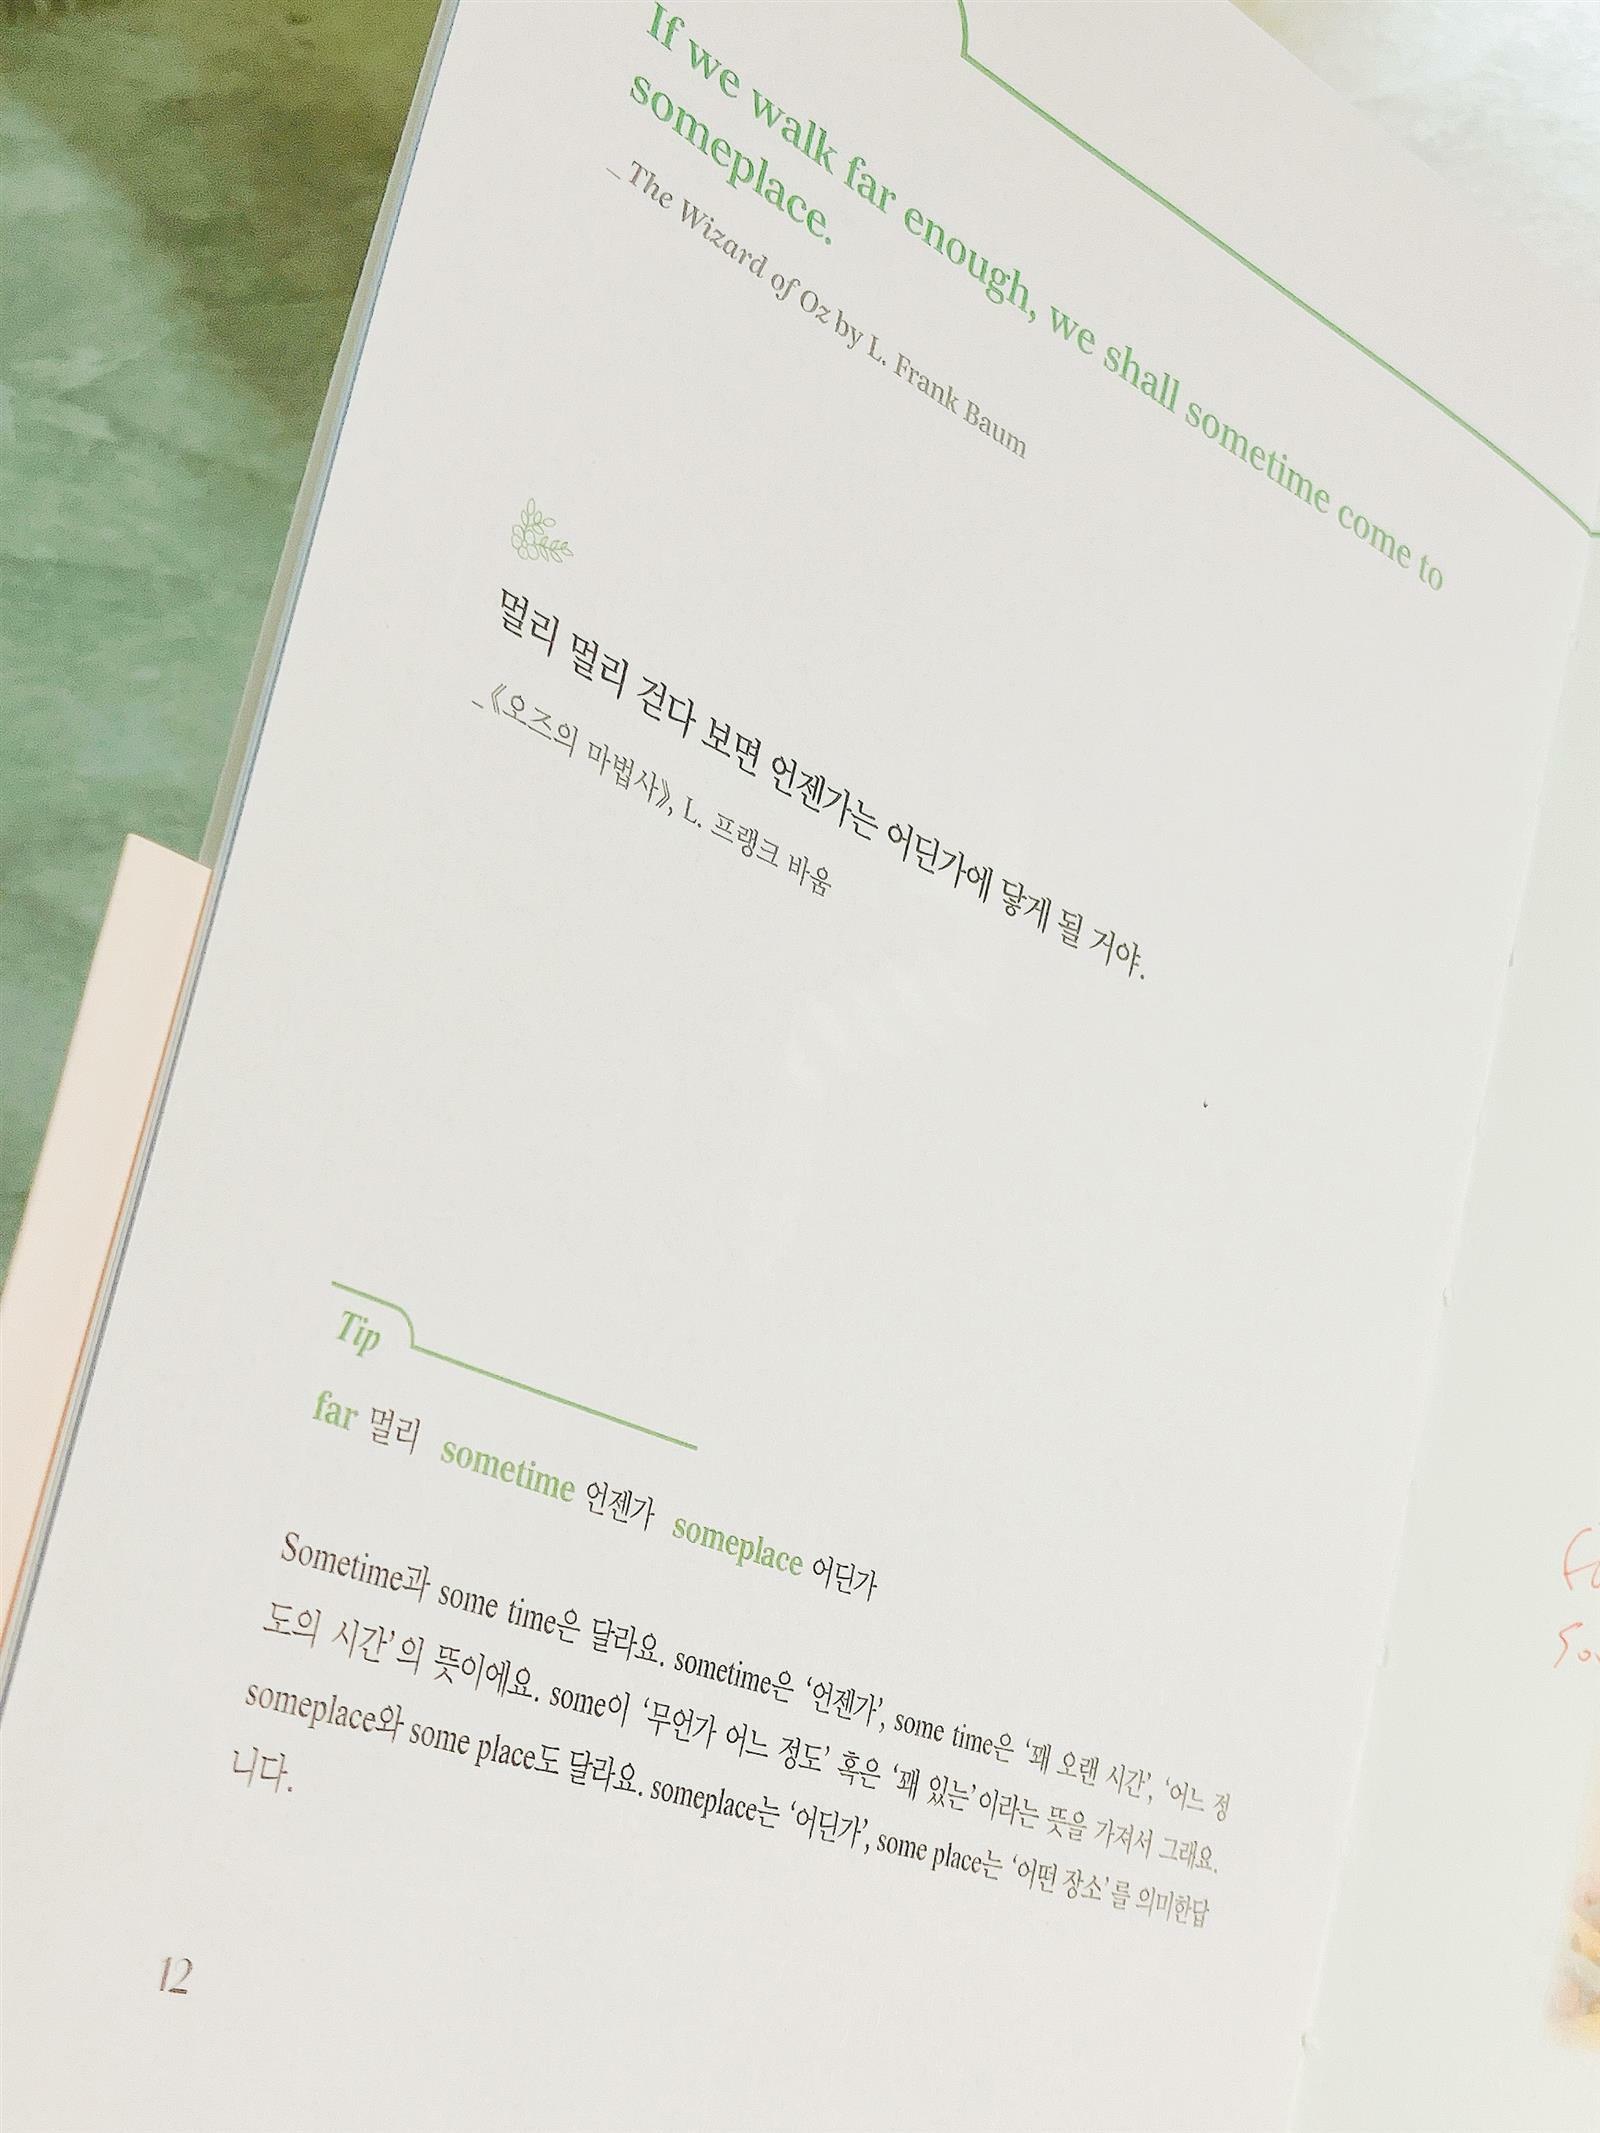 If we walk far enough, we shall sometime come to
someplace.
_ The Wizard of Oz by L. Frank Baum
멀리 멀리 걷다 보면 언젠가는 어딘가에 닿게 될 거야.
_《오즈의 마법사》, L. 프랭크 바움
Tip
far 멀리 sometime 언젠가 someplace 어딘가
Sometime과 some time은 달라요. sometime은 ‘언젠가’, some time은 ‘꽤 오랜 시간’, ‘어느 정
도의 시간’의 뜻이에요. some이 ‘무언가 어느 정도’ 혹은 ‘꽤 있는’이라는 뜻을 가져서 그래요.
someplace와 some place도 달라요. someplace는 ‘어딘가’, some place는 ‘어떤 장소’를 의미한답
니다.
12